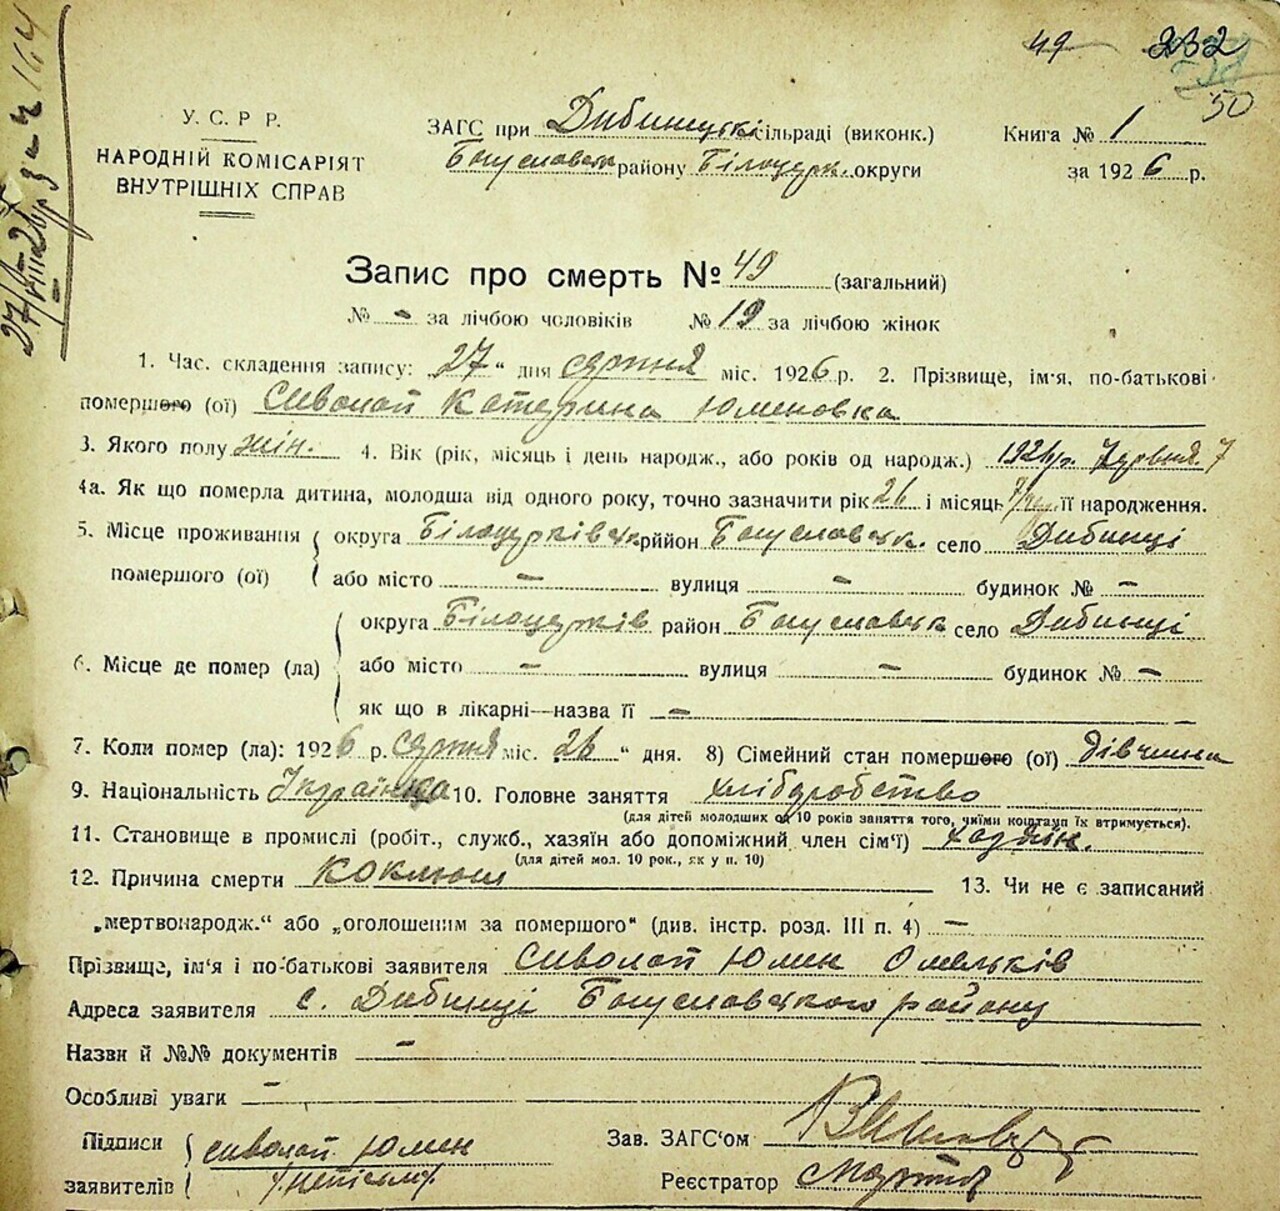 49 232
50
У. С. Р. Р.
НАРОДНІЙ КОМІСАРІЯТ
ВНУТРІШНІХ СПРАВ
ЗАГС при Дибинецькі сільраді (виконк.)
Богуславськ району Білоцерк. округи
Книга № 1
за 1926 р.
Запис про смерть № 49 (загальний)
№ - за лічбою чоловіків № 19 за лічбою жінок
1. Час. складення запису: 27 " дня серпня міс. 1926 р. 2. Прізвище, ім'я, по-батькові
помершого (ої) Сиволап Катерина Юменовка
3. Якого полу жін. 4. Вік (рік, місяць і день народж., або років од народж.) 1926 р. червня 7
4а. Як що померла дитина, молодша від одного року, точно зазначити рік 26 і місяць її народження.
5. Місце проживання помершого (ої) округа Білоцерківськ рййон Богуславськ. село Дибинці
або місто - вулиця - будинок № -
6. Місце де помер (ла) округа Білоцерків район Богуславськ село Дибинці
або місто - вулиця - будинок № -
як що в лікарні—назва її -
7. Коли помер (ла): 1926 р. серпня міс. 26 " дня. 8) Сімейний стан помершого (ої) дівчина
9. Національність Українка 10. Головне заняття хліборобство
(для дітей молодших од 10 років заняття того, чиїми коштами їх втримується).
11. Становище в промислі (робіт., служб., хазяїн або допоміжний член сім'ї) хазяїн.
(для дітей мол. 10 рок., як у п. 10)
12. Причина смерти коклюш 13. Чи не є записаний
„мертвонародж.“ або „оголошеним за помершого“ (див. інстр. розд. III п. 4) -
Прізвище, ім'я і по-батькові заявителя Сиволап Юмен Омельків
Адреса заявителя с. Дибинці Богуславського району
Назви й №№ документів -
Особливі уваги -
Підписи заявителів сиволап Юмен
Зав. ЗАГС'ом
Реєстратор